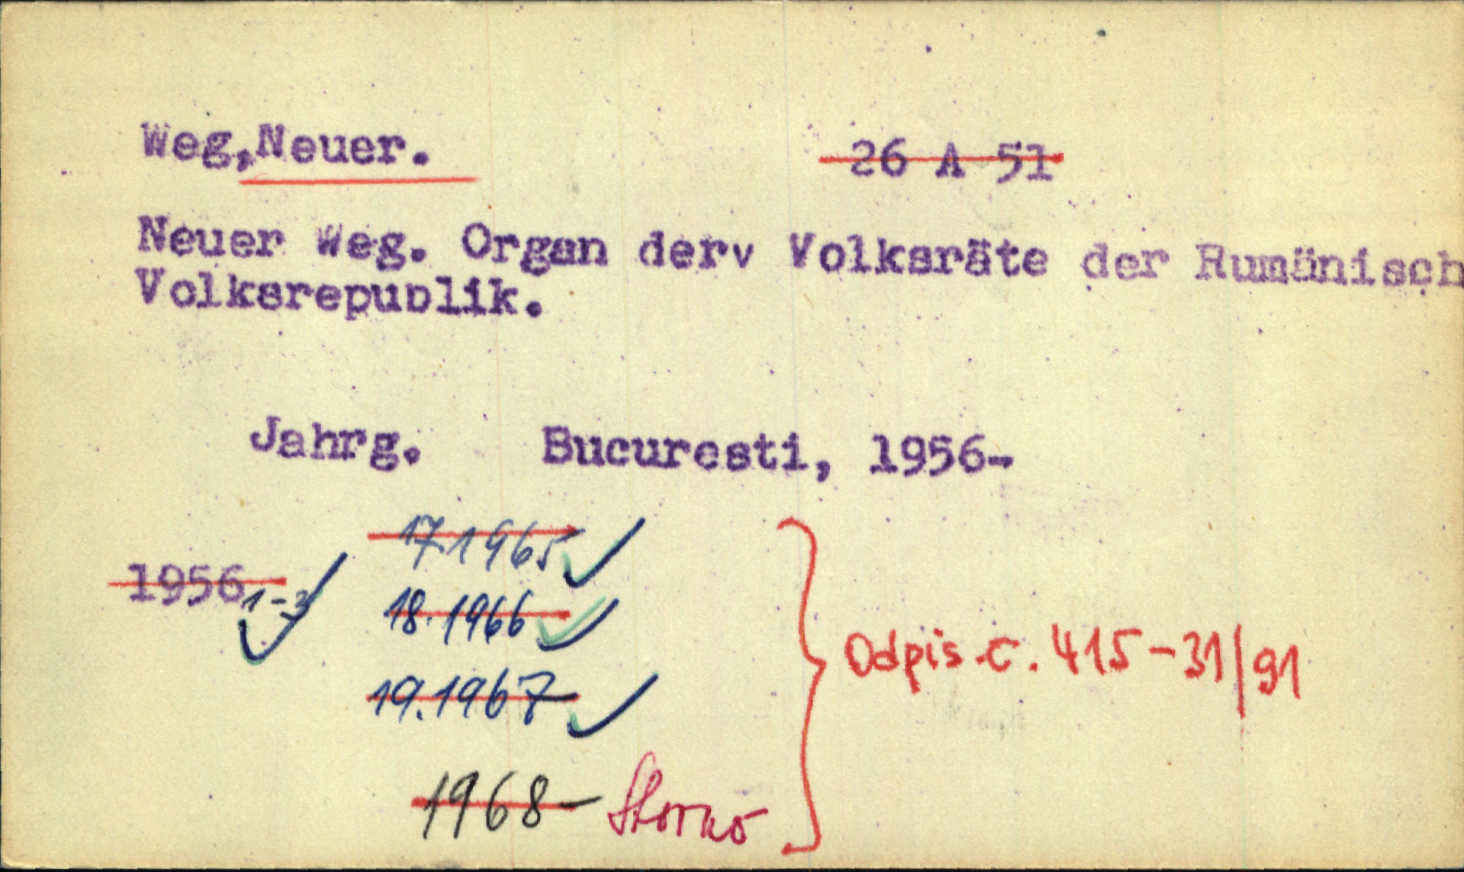 Weg,Neuer.
26 A 51
Neuer Weg. Organ derv Volksräte der Rumänisch
Volksrepublik.
Jahrg. Bucuresti, 1956-
17.1965
1956 1-3
18.1966
19.1967
1968- Storno
Odpis.c. 415-31/91